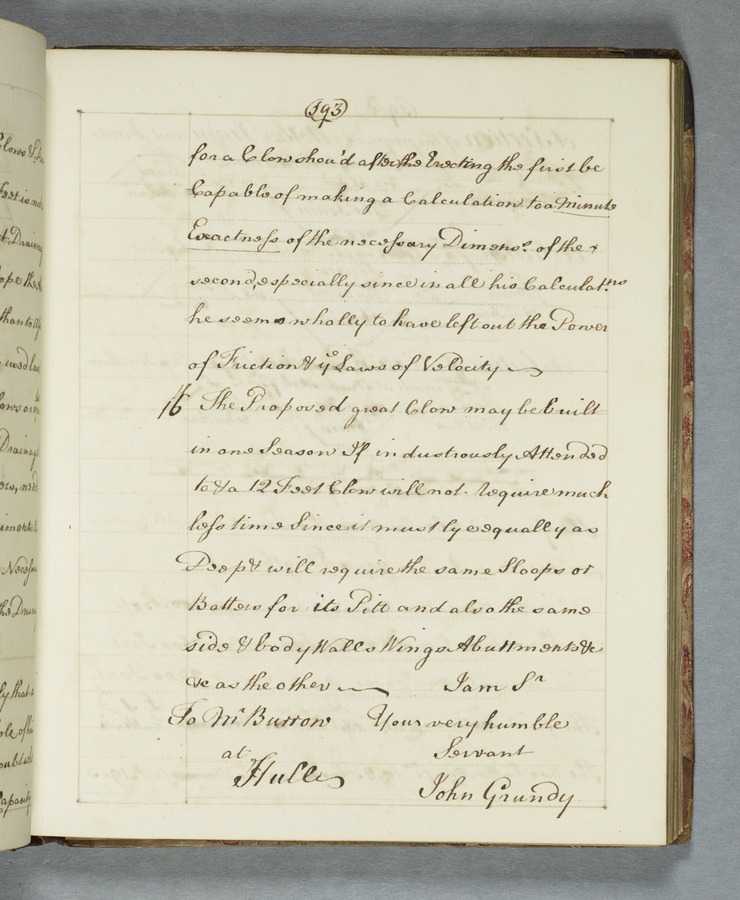 193
for a Clow shou'd after the Erecting the first be
Capable of making a Calculation to a Minute
Exactness of the necessary Dimens.s of the
second, especially since in all his Calculat.ns
he seems wholly to have left out the Power
of Friction & ye Laws of Velocity
16 The Proposed great Clow may be built
in one Season If industrously Attended
to & a 12 Feet Clow will not require much
less time Since it must lye equally as
Deep & will require the same Sloops or
Batters for its Pitt and also the same
side & body Walls Wings Abuttments &c
&c as the other I am Sr
To Mr Burrow Your very humble
at Servant
Hull
John Grundy
Clows &
Feet is
Drain
ope the
than to
used
Drainag
Necess
the Drain
ly that
Capacity